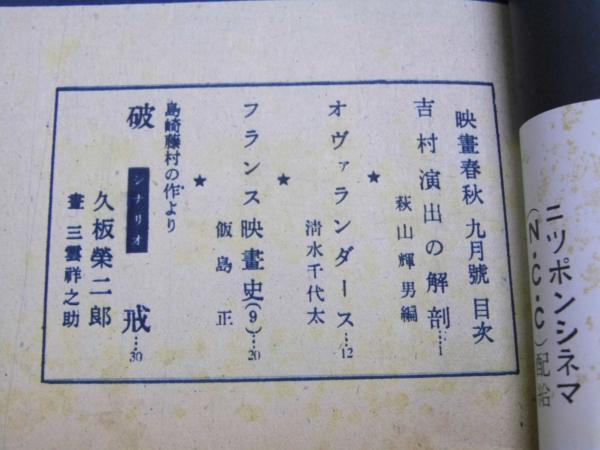 映畫春秋 九月號 目次
吉村演出の解剖…1
萩山輝男編
★
オヴァランダース…12
清水千代太
★
フランス映畫史(9)…20
飯島 正
★
島崎藤村の作より
破 シナリオ 戒…30
久板榮二郎
畫 三雲祥之助
ニツポンシネマ
(N.C.C)配給